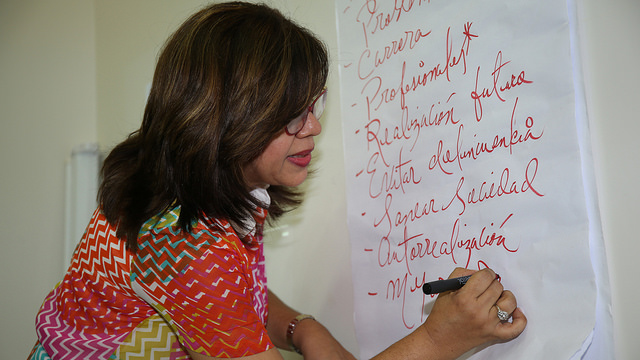 - Carrera
- Profesionales*
- Realización futura
- Evitar delincuencia
- Sanear Sociedad
- Autorrealización